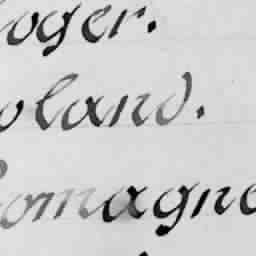 oger.
oland.
omagne